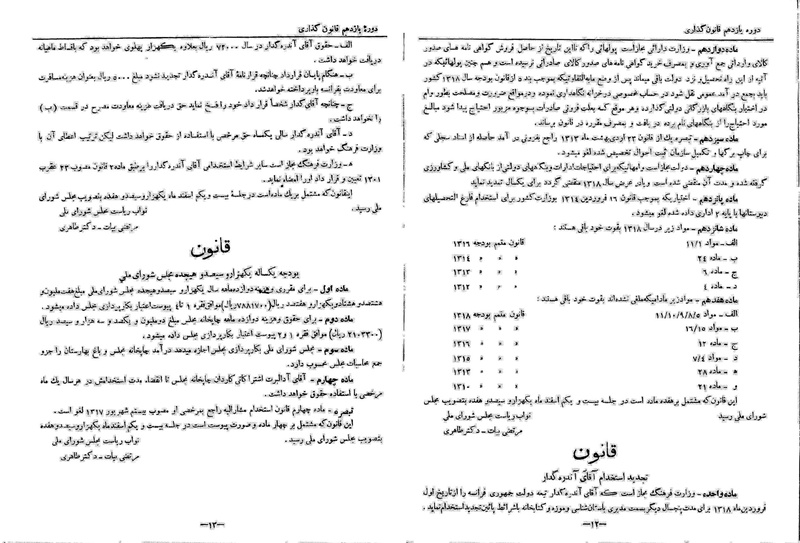 دوره یازدهم قانون گذاری
ماده دوازدهم - وزارت دارائی مجاز است پولهائی را که تا این تاریخ از حاصل فروش گواهی نامه های صدور
کالای وارداتی جمع آوری و بمصرف خرید گواهی نامه های صدور کالای صادراتی نرسیده است و هم چنین پولهائیکه در
آتیه از این راه تحصیل و نزد دولت باقی میماند پس از وضع مابه‌التفاوتیکه بموجب بند ۵ از قانون بودجه سال ۱۳۱۸ کشور
باید بجمع درآمد عمومی نقل شود در حساب مخصوصی در خزانه نگاهداری نموده و در مواقع ضرورت و مصلحت بطور وام
در اختیار بنگاههای بازرگانی دولتی گذارد و هر موقع که بعلت فزونی صادرات بوجوه مزبور احتیاج پیدا شود مبالغ
مورد احتیاج را از بنگاههای نام برده دریافت و بمصرف مقرره در قانون برساند.
ماده سیزدهم - تبصره یک از قانون ۲۳ اردی بهشت ماه ۱۳۱۳ راجع بفزونی درآمد حاصله از اسناد سجلی که
برای چاپ برگها و تکمیل سازمان ثبت احوال تخصیص شده لغو میشود.
ماده چهاردهم - دولت مجاز است وامهائیکه برای احتیاجات ادارات و بنگاههای دولتی از بانکهای ملی و کشاورزی
گرفته شده و مدت آن منقضی شده و یا در عرض سال ۱۳۱۸ منقضی گردد برای یکسال تمدید نماید
ماده پانزدهم - اختیاریکه بموجب قانون ۱۶ فروردین ۱۳۱۴ بوزارت کشور برای استخدام فارغ التحصیلهای
دبیرستانها با پایه ۲ اداری داده شده لغو میشود.
ماده شانزدهم - مواد زیر در سال ۱۳۱۸ بقوت خود باقی هستند:
الف - مواد ۱۱/۱ قانون متمم بودجه ۱۳۱۶
ب - ماده ۲۴ » » » ۱۳۱۴
ج - ماده ۶ » » » ۱۳۱۳
د - ماده ۴ » » » ۱۳۱۲
ماده هفدهم - مواد زیر مادامیکه ملغی نشده‌اند بقوت خود باقی هستند:
الف - مواد ۱۱/۱۰/۹/۸/۵ قانون متمم بودجه ۱۳۱۸
ب - مواد ۱۶/۱۵ » » » ۱۳۱۷
ج - ماده ۱۲ » » » ۱۳۱۶
د - مواد ۷/۴ » » » ۱۳۱۵
ه - ماده ۲۸ » » » ۱۳۱۳
و - ماده ۲۱ » » » ۱۳۱۰
این قانون که مشتمل بر هفده ماده است در جلسه بیست و یکم اسفند ماه یکهزار و سیصد و هفده بتصویب مجلس
شورای ملی رسید
نواب ریاست مجلس شورای ملی
مرتضی بیات - دکتر طاهری
قانون
تجدید استخدام آقای آندره گدار
ماده واحده - وزارت فرهنگ مجاز است که آقای آندره گدار تبعه دولت جمهوری فرانسه را از تاریخ اول
فروردین ماه ۱۳۱۸ برای مدت پنجسال دیگر بسمت مدیری باستان شناسی و موزه و کتابخانه با شرائط پائین تجدید استخدام نماید.
-۱۲-
دوره یازدهم قانون گذاری
الف - حقوق آقای آندره گدار در سال ۷۲۰۰۰ ریال بعلاوه یکهزار پهلوی خواهد بود که باقساط ماهیانه
دریافت خواهد داشت.
ب - هنگام پایان قرارداد چنانچه قرارنامه آقای آندره گدار تجدید نشود مبلغ ۵۰۰۰ ریال بعنوان هزینه مسافرت
برای معاودت بفرانسه باو پرداخته خواهد شد.
ج - چنانچه آقای گدار شخصاً قرار داد خود را فسخ نماید حق دریافت هزینه معاودت مصرح در قسمت (ب)
را نخواهد داشت.
د - آقای آندره گدار سالی یکماه حق مرخصی با استفاده از حقوق خواهد داشت لیکن ترتیب اعطای آن با
وزارت فرهنگ خواهد بود.
ه - وزارت فرهنگ مجاز است سایر شرایط استخدامی آقای آندره گدار را بر طبق ماده ۲ قانون مصوب ۲۳ عقرب
۱۳۰۱ تعیین و قرارداد او را امضاء نماید.
این قانون که مشتمل بر یک ماده است در جلسه بیست و یکم اسفند ماه یکهزار و سیصد و هفده بتصویب مجلس شورای
ملی رسید.
نواب ریاست مجلس شورای ملی
مرتضی بیات - دکتر طاهری
قانون
بودجه یکساله یکهزار و سیصد و هیجده مجلس شورای ملی
ماده اول - برای مقرری و هزینه دوازده ماهه سال یکهزار و سیصد و هیجده مجلس شورای ملی مبلغ هفت ملیون و
هشتصد و هشتاد و یکهزار و هفتصد ریال (۷۸۸۱۷۰۰ ریال) موافق فقره ۱ تا ٤ پیوست اعتبار بکارپردازی مجلس داده میشود.
ماده دوم - برای حقوق و هزینه دوازده ماهه چاپخانه مجلس مبلغ دو ملیون و یکصد و سه هزار و سیصد ریال
(۲۱۰۳۳۰۰ ریال) موافق فقره ۱ و ۲ پیوست اعتبار بکارپردازی مجلس داده میشود.
ماده سوم - مجلس شورای ملی بکارپردازی مجلس اجازه میدهد درآمد چاپخانه مجلس و باغ بهارستان را جزو
جمع محاسبات مجلس محسوب دارد.
ماده چهارم - آقای آدالبرت اشتراکاتی کاردان چاپخانه مجلس تا انقضاء مدت استخدامش در هر سال یک ماه
مرخصی با استفاده حقوق خواهد داشت.
تبصره - ماده چهارم قانون استخدام مشارالیه راجع بمرخصی او مصوب بیستم شهریور ۱۳۱۷ لغو است.
این قانون که مشتمل بر چهار ماده و صورت پیوست است در جلسه بیست و یکم اسفند ماه یکهزار و سیصد و هفده
بتصویب مجلس شورای ملی رسید.
نواب ریاست مجلس شورای ملی
مرتضی بیات - دکتر طاهری
-۱۳-